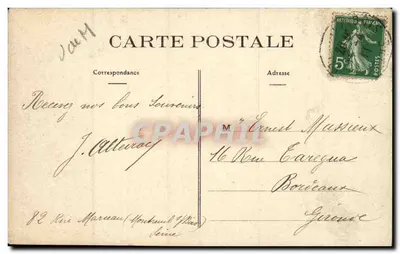 CARTE POSTALE
Correspondance
Adresse
Recevez nos bons souvenirs
Mr Ernest Massieux
16 Rue
Bordeaux
Gironde
82 Rue Marceau (Montreuil s/Bois)
Seine
5c
POSTES
CPAPHIL